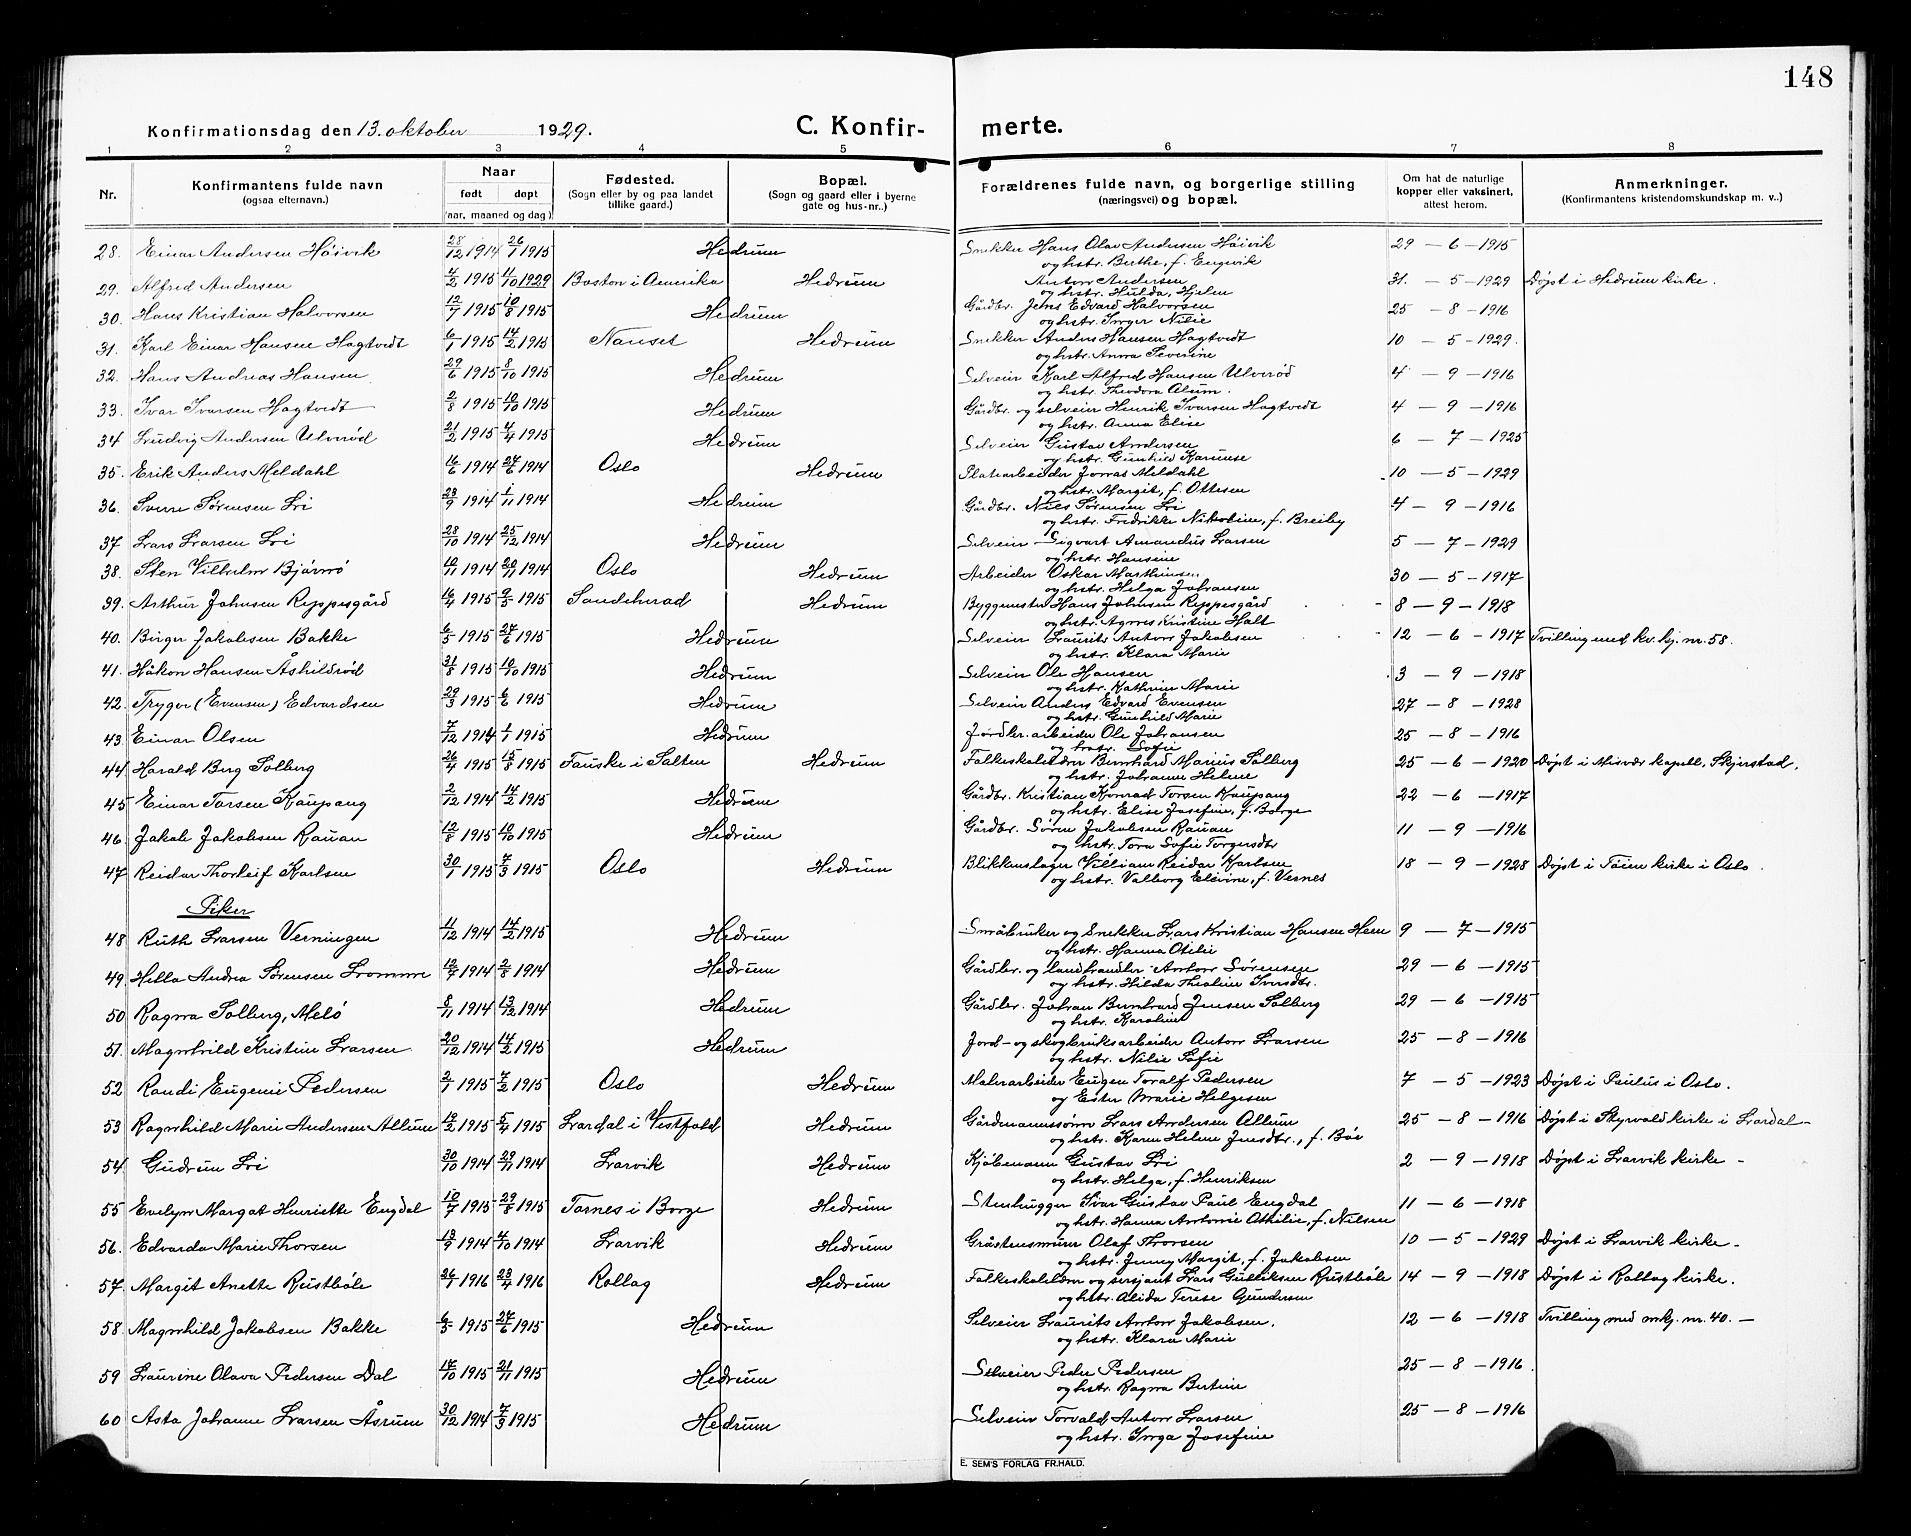 148
Konfirmationsdag den 13. oktober 1929. C. Konfir- merte.
1 2 3 4 5 6 7 8
Nr. Konfirmantens fulde navn (ogsaa efternavn.) Naar født døpt (aar, maaned og dag) Fødested. (Sogn eller by og paa landet tillike gaard.) Bopæl. (Sogn og gaard eller i byerne gate og hus-nr.) Forældrenes fulde navn, og borgerlige stilling (næringsvei) og bopæl. Om hat de naturlige kopper eller vaksinert, attest herom. Anmerkninger. (Konfirmantens kristendomskundskap m. v..)
28. Einar Andersen Høivik 28/12 1914 26/1 1915 Hedrum Snekker Hans Olav Andersen Høivik 29 - 6 - 1915
og hstr. Berthe, f. Engevik
29. Alfred Andersen 4/2 1915 11/10 1929 Boston i Amerika Hedrum Anton Andersen 31. - 5 - 1929 Døpt i Hedrum kirke.
og hstr. Hulda, Hjelm
30. Hans Kristian Halvorsen 12/7 1915 10/8 1915 Hedrum Gårdbr. Jens Edvard Halvorsen 25 - 8 - 1916
og hstr. Inger Nilie
31. Karl Einar Hansen Hagtvedt 6/1 1915 14/2 1915 Nanset Hedrum Snekker Anders Hansen Hagtvedt 10 - 5 - 1929.
og hstr. Anna Severine
32. Hans Andreas Hansen 29/6 1915 8/10 1915 Hedrum Selveier Karl Alfred Hansen Ulverød 4 - 9 - 1916
og hstr. Theodora Alum.
33. Ivar Ivarsen Hagtvedt 2/8 1915 10/10 1915 Hedrum Gårdbr. og selveier Henrik Ivarsen Hagtvedt 4 - 9 - 1916
og hstr. Anna Elise
34 Ludvig Andersen Ulverød 21/2 1915 4/4 1915 Hedrum Selveier Gustav Andersen 6 - 7 - 1925
og hstr. Gunhild Karense
35. Erik Anders Meldahl 16/6 1914 27/6 1914 Oslo Hedrum Platearbeider Jonas Meldahl 10 - 5 - 1929
og hstr. Margit, f. Ottesen
36. Sverre Sørensen Li 23/9 1914 1/11 1914 Hedrum Gårdbr. Niels Sørensen Li 4 - 9 - 1916
og hstr. Fredrikke Nikoline, f. Breiby
37 Lars Larsen Li 28/10 1914 25/12 1914 Hedrum Selveier Sigvart Amandus Larsen 5 - 7 - 1929
og hstr. Hansine
38. Sten Vilhelm Bjørnø 10/11 1914 20/11 1914 Oslo Hedrum Arbeider Oskar Marthinsen 30 - 5 - 1917
og hstr. Helga Johansen
39. Arthur Johnsen Reppesgård 16/4 1915 9/5 1915 Sandeherad Hedrum Byggmester Hans Johnsen Reppesgård - 8 - 9 - 1918
og hstr. Agnes Kristine Holt
40. Birger Jakobsen Bakke 6/5 1915 27/6 1915 Hedrum Selveier Laurits Anton Jakobsen - 12 - 6 - 1917 Tvilling med kv. kj. nr. 58.
og hstr. Klara Marie
41. Håkon Hansen Åshildrød 31/8 1915 10/10 1915 Hedrum Selveier Ole Hansen 3 - 9 - 1918
og hstr. Kathrine Marie
42. Trygve (Evensen) Edvardsen 29/3 1915 6/6 1915 Hedrum Selveier Anders Edvard Evensen 27 - 8 - 1928
og hstr. Gunhild Marie
43. Einar Olsen 7/12 1914 1/1 1915 Hedrum Jordbr. arbeider Ole Johansen 25 - 8 - 1916
og hstr. Sofie
44 Harald Berg Solberg 26/4 1915 15/8 1915 Fauske i Salten Hedrum Folkeskolelærer Bernhard Marius Solberg 25 - 6 - 1920 Døpt i Misvær kapell, Skjerstad.
og hstr. Johanne Helene
45 Einar Torsen Kaupang 2/12 1914 14/2 1915 Hedrum Gårdbr. Kristian Konrad Torsen Kaupang 22 - 6 - 1917
og hstr. Elise Josefine, f. Borge
46. Jakob Jakobsen Rauan 12/8 1915 10/10 1915 Hedrum Gårdbr. Søren Jakobsen Rauan 11 - 9 - 1916
og hstr. Tora Sofie Torgersdtr
47 Reidar Thorleif Karlsen 30/1 1915 7/3 1915 Oslo Hedrum Blikkenslager William Reidar Karlsen 18 - 9 - 1928 Døpt i Tøien kirke i Oslo.
og hstr. Valborg Elevine, f. Vernes
Piker
48 Ruth Larsen Verningen 11/12 1914 14/2 1915 Hedrum Småbruker og snekker Lars Kristian Hansen Hem 9 - 7 - 1915
og hstr. Hanna Otelie
49. Hella Andrea Sørensen Lromme 12/7 1914 2/8 1914 Hedrum Gårdbr. og landhandler Anton Sørensen 29 - 6 - 1915
og hstr. Hilda Theoline Iversdtr.
50 Ragna Solberg, Melø 8/11 1914 13/12 1914 Hedrum Gårdbr. Johan Bernhard Jensen Solberg 29 - 6 - 1915
og hstr. Karoline
51. Magnhild Kristine Larsen 20/12 1914 14/2 1915 Hedrum Jord- og skogbruksarbeider Anton Larsen 25 - 8 - 1916
og hstr. Nilie Sofie
52 Randi Eugenie Pedersen 2/1 1915 7/2 1915 Oslo Hedrum Malerarbeider Eugen Toralf Pedersen 7 - 5 - 1923 Døpt i Paulus i Oslo.
og Ester Marie Helgesen
53 Ragnhild Marie Andersen Allum 13/2 1915 5/4 1915 Lardal i Vestfold Hedrum Gårdmannssønn Lars Andersen Allum 25 - 8 - 1916 Døpt i Styrvold kirke i Lardal -
og hstr. Karen Helene Jensdtr., f. Bøe
54. Gudrun Li 30/10 1914 29/11 1914 Larvik Hedrum Kjøbmann Gustav Li 2 - 9 - 1918 Døpt i Larvik kirke -
og hstr. Helga, f. Henriksen
55 Evelyn Margot Henriette Engdal 10/7 1915 29/8 1915 Tornes i Borge Hedrum Stenhugger Ivar Gustav Paul Engdal 11 - 6 - 1918
og hstr. Hanna Antonie Othilie, f. Nilsen
56. Edvarda Marie Thorsen 13/9 1914 4/10 1914 Larvik Hedrum Gråstensmurer Olaf Thorsen 10 - 5 - 1929 Døpt i Larvik kirke -
og hstr. Jenny Margit, f. Jakobsen
57. Margit Anette Rustbøle 26/1 1916 23/4 1916 Rollag Hedrum Folkeskolelærer og sersjant Lars Gulliksen Rustbøle 14 - 9 - 1918 Døpt i Rollag kirke.
og hstr. Alida Terese Gundersen
58. Magnhild Jakobsen Bakke 6/5 1915 27/6 1915 Hedrum Selveier Laurits Anton Jakobsen. 12 - 6 - 1918 Tvilling med mkj. nr. 40. -
og hstr. Klara Marie
59 Laurine Olava Pedersen Dal 17/10 1915 21/11 1915 Hedrum Selveier Peder Pedersen 25 - 8 - 1916.
og hstr. Ragna Bertine
60 Asta Johanne Larsen Åsrum 30/12 1914 7/3 1915 Hedrum Selveier Torvald Anton Larsen 25 - 8 - 1916
og hstr. Inga Josefine
E. SEM'S FORLAG FR.HALD.